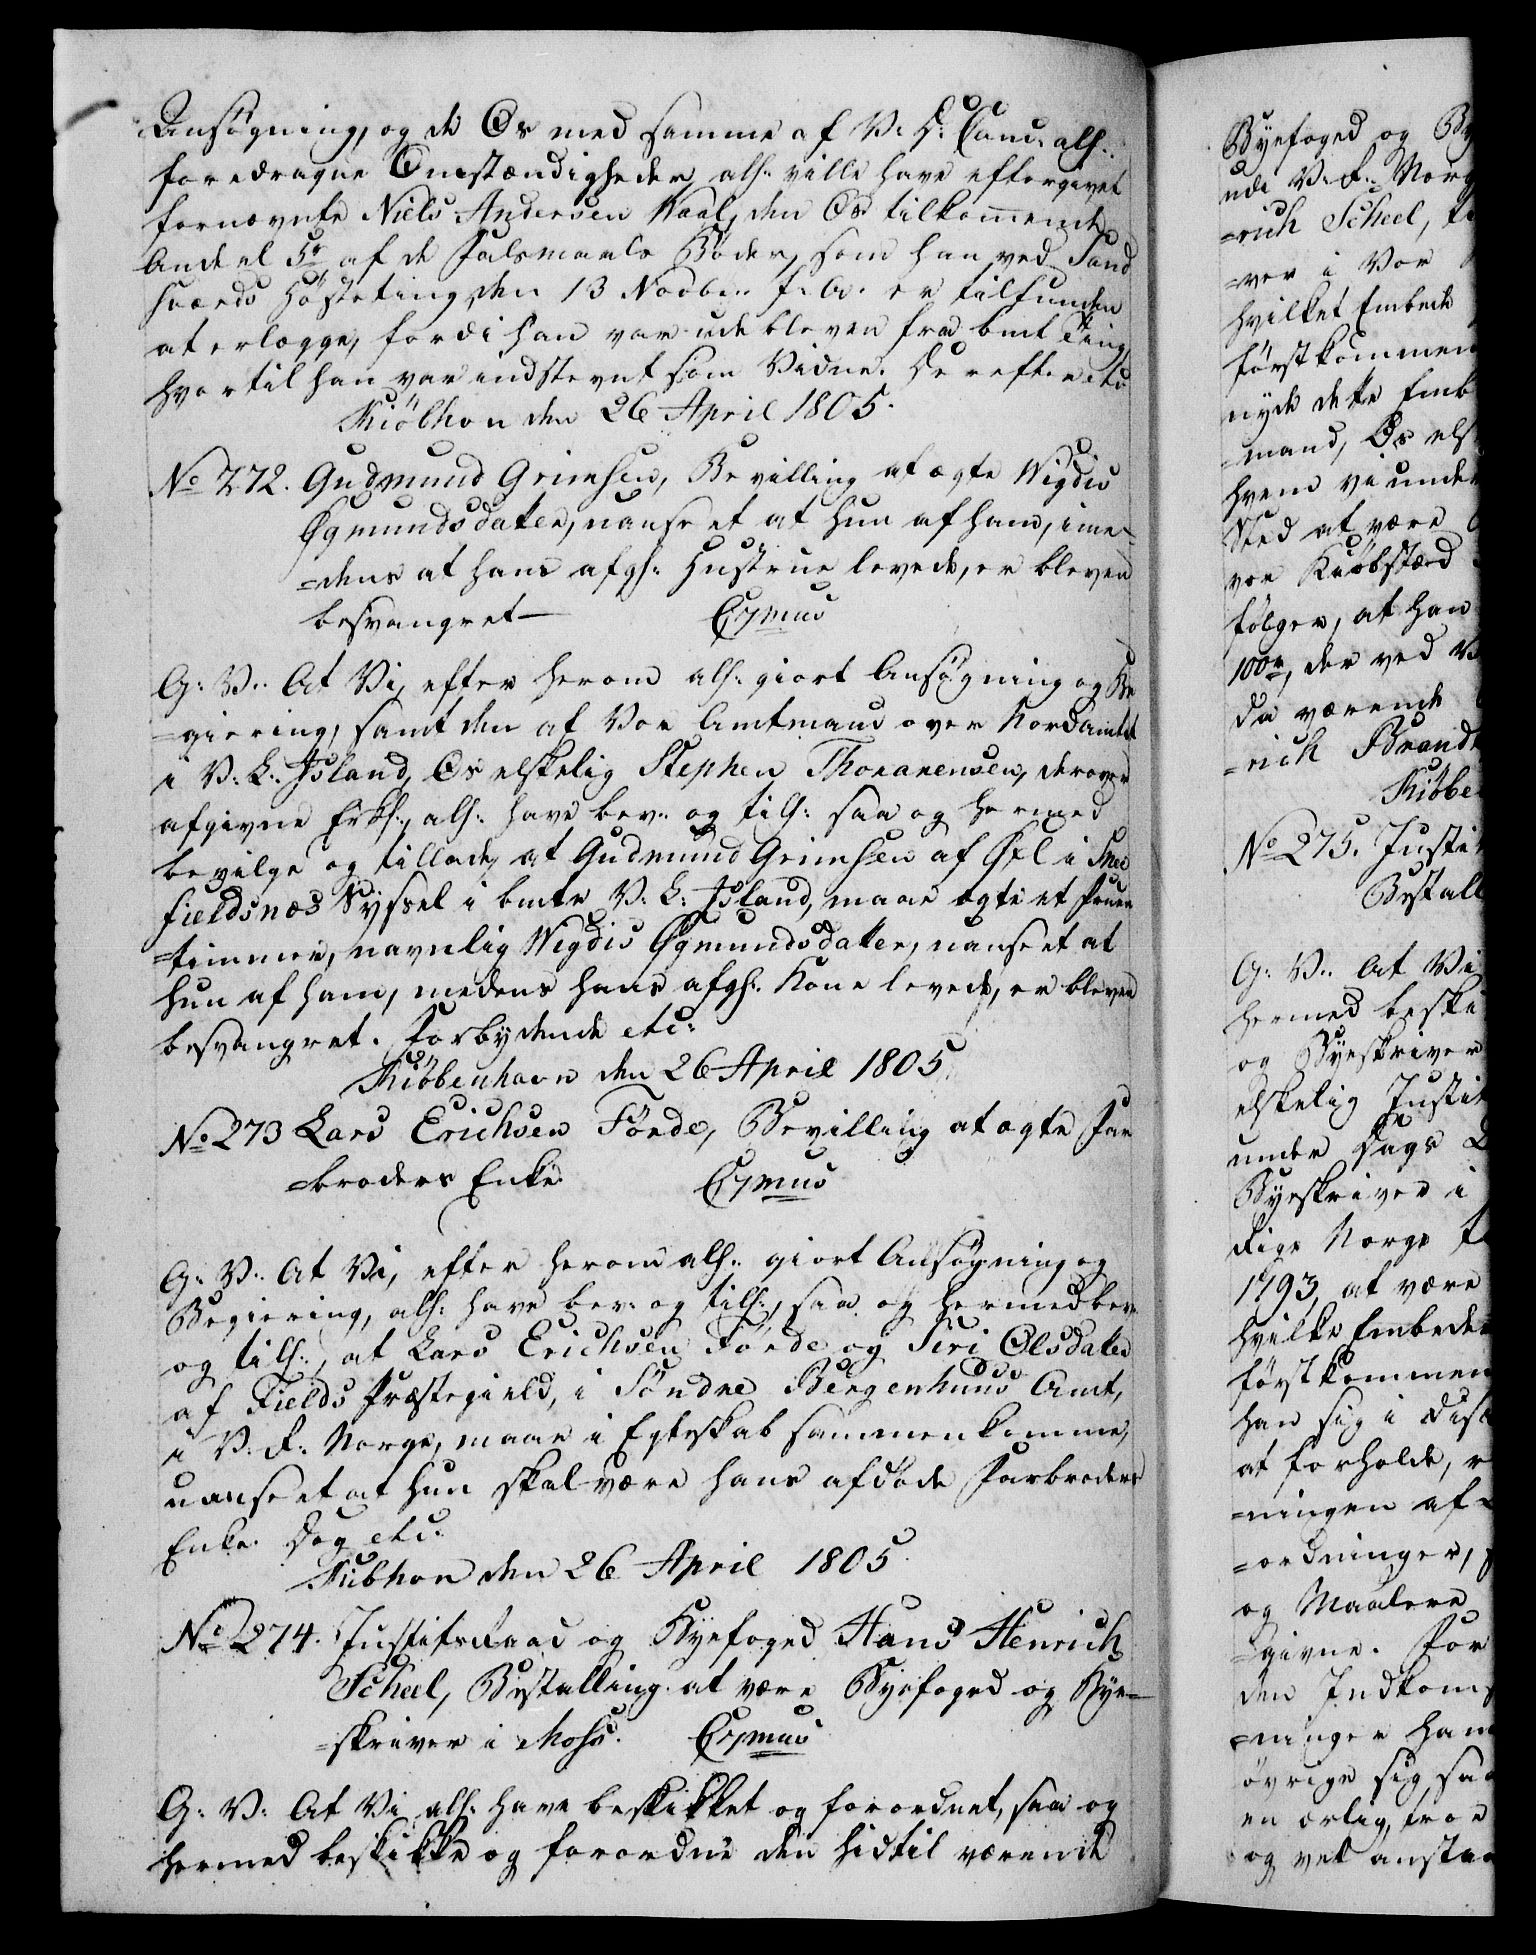 Ansøgning, og de Os med samme af V. D: Canc: alh:
foredragne Omstændigheder, alh: ville have eftergivet
fornævnte Niels Andersen Kaal, den Os tilkommende
Andeel af de Falsmaals Bøder, som han ved Sand
hværds Høsteting den 13 Novbr: f: A. er tilfunden
at erlægge, fordi han var udebleven fra bmt Ting,
hvortil han var indstevnt som Vidne. Derefter etc
Kiøbhvn den 26 April 1805.
No 272. Gudmund Grimsen, Bevilling at ægte Vigdis
Øgmundsdatter, uanseet at hun af ham, ime-
=dens at hans afg: Hustrue levede, er bleven
besvangret - Cismus
G: V: At Vi, efter herom alh: giort Ansøgning og Be
=giering, samt den af Vor Amtmand over Nordamtet
i V: L: Island, Os elskelig Stephen Thorarensen, derover
afgivne Erkl:, alh: have bev: og till: saa og hermed
bevilge og tillade, at Gudmund Grimsen af i Snee
fieldsnæs Syssel i bmte V: L: Island, maae ægte et Fruen
=timmer, navnlig Vigdis Øgmundsdatter, uanseet at
hun af ham, medens hans afg: Kone levede, er bleven
besvangret. Forbydende etc:
Kiøbenhavn den 26 April 1805
No 273 Lars Erichsen Førde, Bevilling at ægte Far
=broders Enke. Cismus
G: V: At Vi, efter herom alh: giort Ansøgning og
Begiering, alh: have bev: og till:, saa og hermed bev:
og till:, at Lars Erichsen Førde og Siri Olsdatter
af Fields Præstegield, i Søndre Bergenhuus Amt,
i V: R: Norge, maae i Egteskab sammenkomme,
uanseet at hun skal være hans afdøde Farbroders
Enke. Dog etc:
Kiøbhvn den 26 April 1805.
No 274. Justitsraad og Byefoged Hans Henrich
Scheel, Bestalling at være Byefoged og Bye-
=skriver i Moss. Cismus
G: V: At Vi alh: have beskikket og forordnet, saa og
hermed beskikke og forordne den hidtil værende
Byefoged og
udi V: R: Norg
=rich Scheel,
=ver i Vor
hvilket Embede
førstkommen
nyde dette Emb
=mand, Os els
hvem vi unde
Sted at være
vor Kiøbstæd
følger, at han
100, der ved
da værende
=rich Brand
Kiøbe
No 275. Justi
Bestall
G: V: At Vi
hermed beski
og Byeskriver
elskelig Justit
under Dags
Byeskriver i
Rige Norge
1793, at være
hvilke Embede
førstkommen
han sig i disse
at forholde,
=ningen af
=ordninger,
og Maalere
=givne. For
den Indkoms
=ninger ham
øvrige sig saa
en ærlig, troe
og vel anstaa